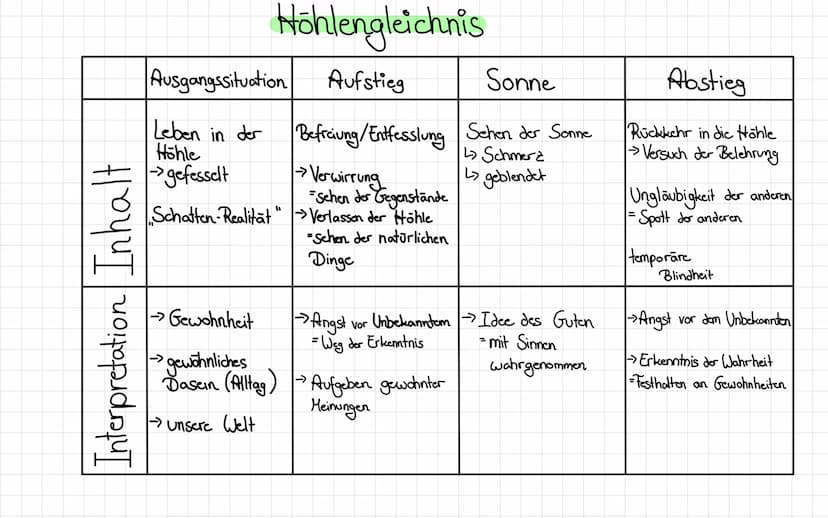 Höhlengleichnis
Ausgangssituation
Aufstieg
Sonne
Abstieg
Inhalt
Leben in der
Höhle
→ gefesselt
„Schatten-Realität"
Befreiung/Entfesslung
→ Verwirrung
= sehen der Gegenstände
→ Verlassen der Höhle
= sehen der natürlichen
Dinge
Sehen der Sonne
↳ Schmerz
↳ geblendet
Rückkehr in die Höhle
→ Versuch der Belehrung
Ungläubigkeit der anderen
= Spott der anderen
temporäre
Blindheit
Interpretation
→ Gewohnheit
→ gewöhnliches
Dasein (Alltag)
→ unsere Welt
→ Angst vor Unbekanntem
= Weg der Erkenntnis
→ Aufgeben gewohnter
Meinungen
→ Idee des Guten
= mit Sinnen
wahrgenommen
→ Angst vor dem Unbekannten
→ Erkenntnis der Wahrheit
= Festhalten an Gewohnheiten